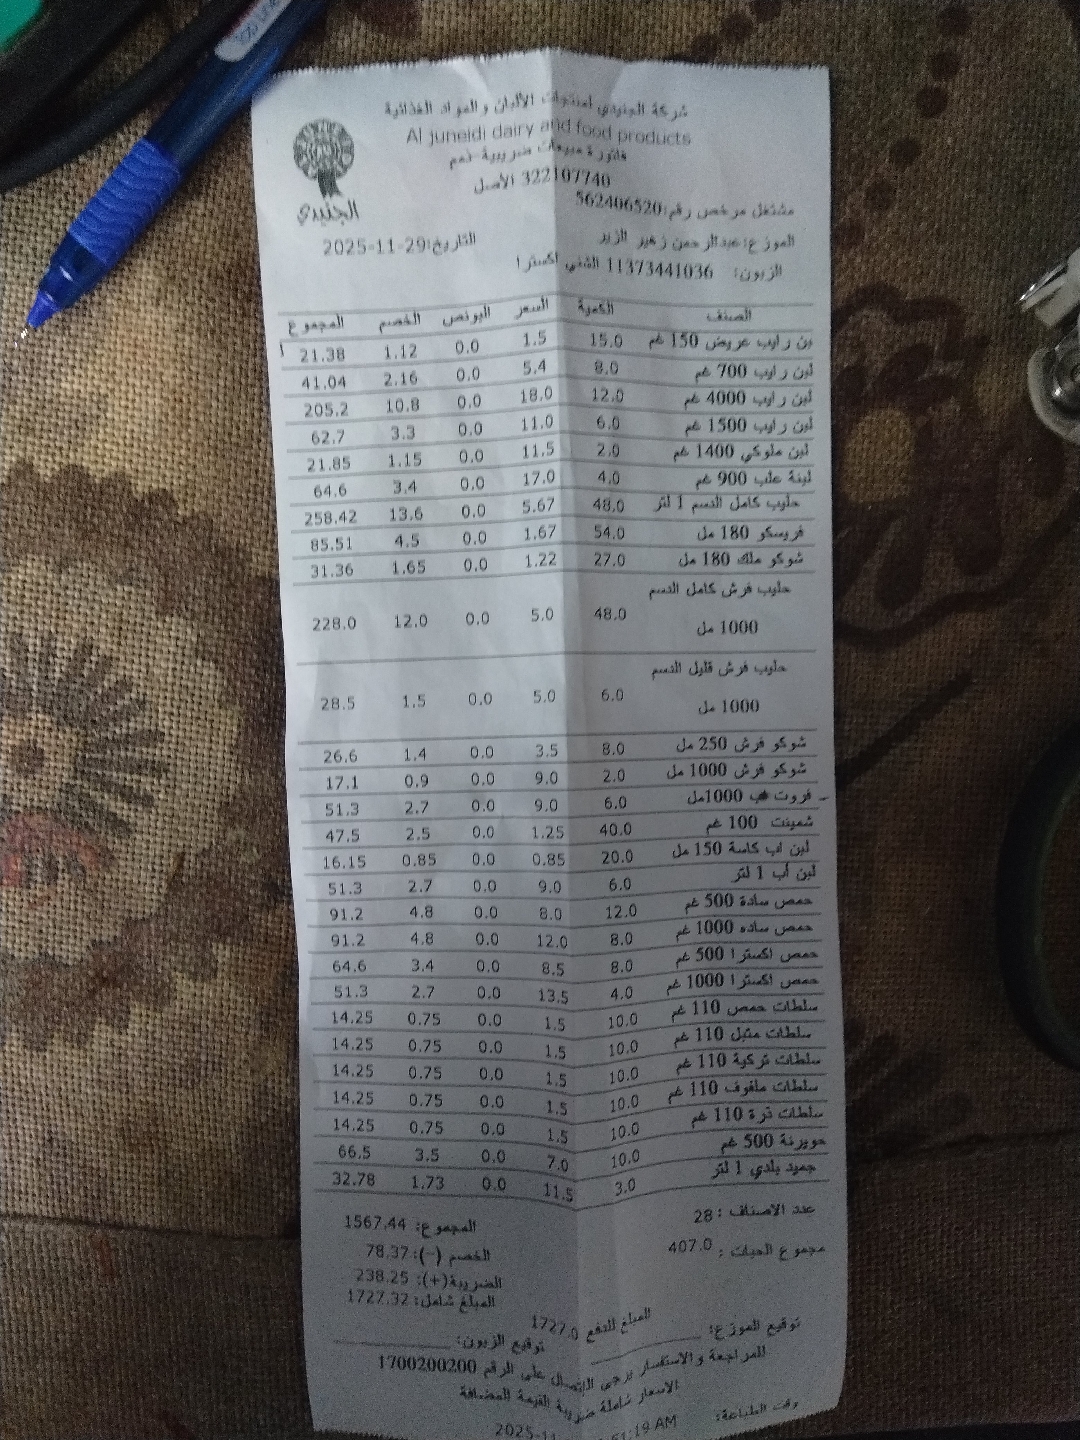 شركة الجنيدي لمنتوجات الألبان والمواد الغذائية
Al juneidi dairy and food products
فاتورة مبيعات ضريبية ذمم
322107740 الأصل
الجنيدي
مشتغل مرخص رقم:562406520
الموزع: عبدالرحمن زهير الزير التاريخ:29-11-2025
الزبون: 11373441036 الشني اكسترا
الصنف الكمية السعر البونص الخصم المجموع
بن رايب عريض 150 غم 15.0 1.5 0.0 1.12 21.38
لبن رايب 700 غم 8.0 5.4 0.0 2.16 41.04
لبن رايب 4000 غم 12.0 18.0 0.0 10.8 205.2
لبن رايب 1500 غم 6.0 11.0 0.0 3.3 62.7
لبن ملوكي 1400 غم 2.0 11.5 0.0 1.15 21.85
لبنة علب 900 غم 4.0 17.0 0.0 3.4 64.6
حليب كامل الدسم 1 لتر 48.0 5.67 0.0 13.6 258.42
فريسكو 180 مل 54.0 1.67 0.0 4.5 85.51
شوكو ملك 180 مل 27.0 1.22 0.0 1.65 31.36
حليب فرش كامل الدسم
1000 مل 48.0 5.0 0.0 12.0 228.0
حليب فرش قليل الدسم
1000 مل 6.0 5.0 0.0 1.5 28.5
شوكو فرش 250 مل 8.0 3.5 0.0 1.4 26.6
شوكو فرش 1000 مل 2.0 9.0 0.0 0.9 17.1
فروت 1000مل 6.0 9.0 0.0 2.7 51.3
شمينت 100 غم 40.0 1.25 0.0 2.5 47.5
لبن اب كاسة 150 مل 20.0 0.85 0.0 0.85 16.15
لبن أب 1 لتر 6.0 9.0 0.0 2.7 51.3
حمص سادة 500 غم 12.0 8.0 0.0 4.8 91.2
حمص ساده 1000 غم 8.0 12.0 0.0 4.8 91.2
حمص اكسترا 500 غم 8.0 8.5 0.0 3.4 64.6
حمص اكسترا 1000 غم 4.0 13.5 0.0 2.7 51.3
سلطات حمص 110 غم 10.0 1.5 0.0 0.75 14.25
سلطات متبل 110 غم 10.0 1.5 0.0 0.75 14.25
سلطات تركية 110 غم 10.0 1.5 0.0 0.75 14.25
سلطات ملفوف 110 غم 10.0 1.5 0.0 0.75 14.25
سلطات ذرة 110 غم 10.0 1.5 0.0 0.75 14.25
حويرنة 500 غم 10.0 7.0 0.0 3.5 66.5
جميد بلدي 1 لتر 3.0 11.5 0.0 1.73 32.78
عدد الاصناف : 28 المجموع: 1567.44
مجموع الحبات : 407.0 الخصم (-): 78.37
الضريبة(+): 238.25
المبلغ شامل: 1727.32
المبلغ للدفع 1727.0
توقيع الموزع: توقيع الزبون:
للمراجعة والاستفسار يرجى الاتصال على الرقم 1700200200
الاسعار شاملة ضريبة القيمة المضافة
وقت الطباعة: 2025-11 51:19 AM